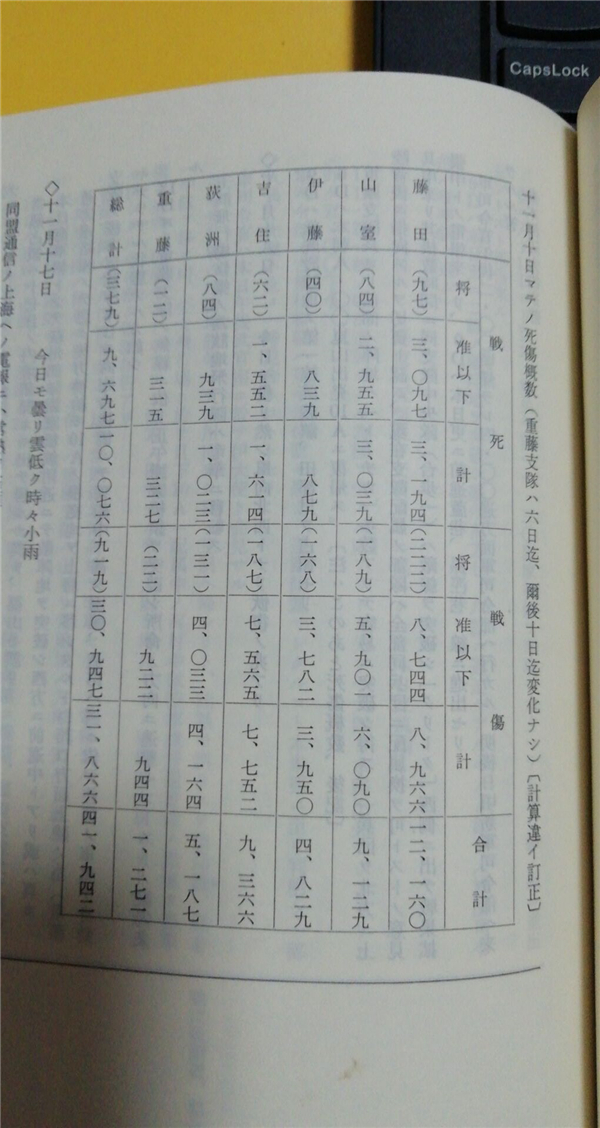 CapsLock
十一月十日マテノ死傷概数（重藤支隊ハ六日迄、爾後十日迄変化ナシ）〔計算違イ訂正〕
戦死 戦傷 合計
将 准以下 計 将 准以下 計
藤田 （九七） 三、〇九七 三、一九四 （二二二） 八、七四四 八、九六六 一二、一六〇
山室 （八四） 二、九五五 三、〇三九 （一八九） 五、九〇一 六、〇九〇 九、一二九
伊藤 （四〇） 八三九 八七九 （一六八） 三、七八二 三、九五〇 四、八二九
吉住 （六二） 一、五五二 一、六一四 （一八七） 七、五六五 七、七五二 九、三六六
荻洲 （八四） 九三九 一、〇二三 （一三一） 四、〇三三 四、一六四 五、一八七
重藤 （一二） 三一五 三二七 （二二） 九二二 九四四 一、二七一
総計 （三七九） 九、六九七 一〇、〇七六 （九一九） 三〇、九四七 三一、八六六 四一、九四二
◇十一月十七日 今日モ曇リ雲低ク時々小雨
同盟通信ノ上海ヘノ電報